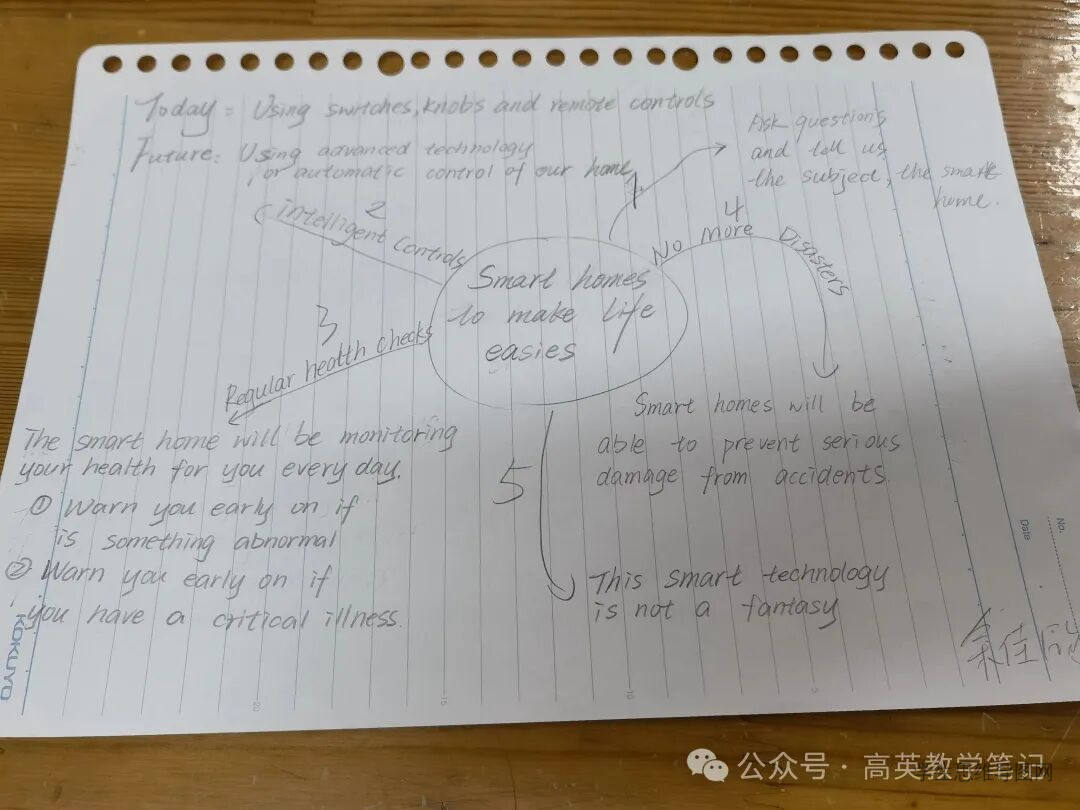 Today = Using switches, knobs and remote controls
Future: Using advanced technology
or automatic control of our home,
1
Ask questions
and tell us
the subject, the smart
home.
2
intelligent controls
4
No more Disasters
Smart homes
to make life
easies
3
Regular health checks
The smart home will be monitoring
your health for you every day.
① Warn you early on if
is something abnormal
② Warn you early on if
you have a critical illness.
Smart homes will be
able to prevent serious
damage from accidents.
5
This smart technology
is not a fantasy
No.
Date
KOKUYO
20
15
10
5
公众号·高英教学笔记